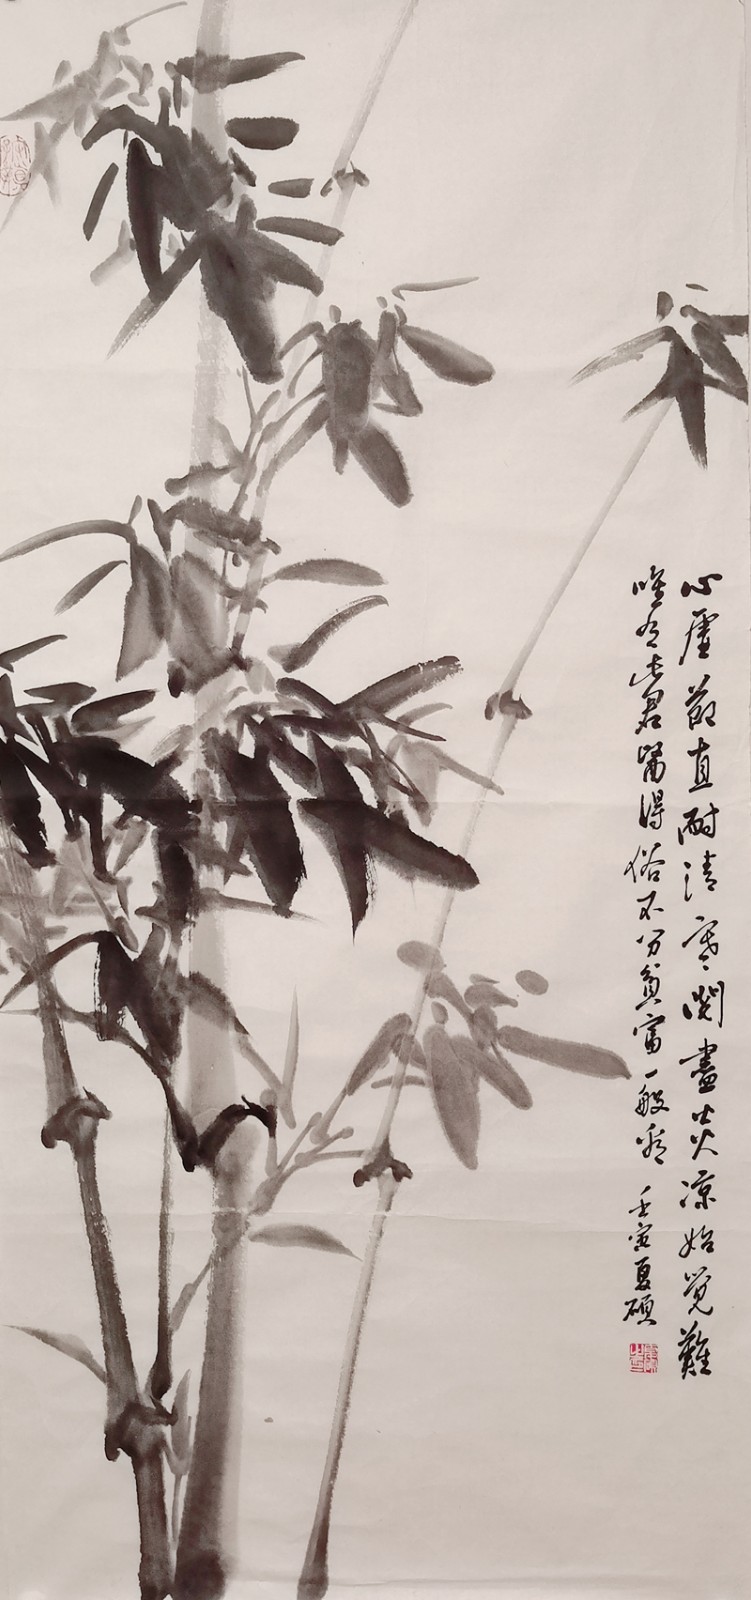 心虛節直耐清寒閱盡炎涼始覺難
唯有此君醫得俗不分貧富一般看
壬寅夏碩